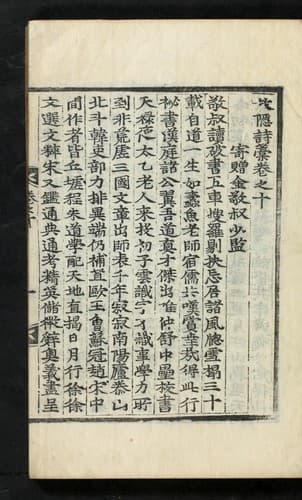 牧隱詩藁卷之十
寄贈金敬叔少監
敬叔讀破書五車搜羅剔抉忘居諸風牕雪榻三十
載自道一生如蠹魚老師宿儒共嘆賞奉敎得此行
祕書漢庭諸公冀吾道眞才傑出唯仲舒中壘校書
天祿夜太乙老人來初子雲識字才識車學力所
到非竟虛三國文章出師表千年寂寂南陽廬泰山
北斗韓吏部力排異端仍補苴歐王曾蘇冠趙宋中
間作者皆丘墟程朱道學配天地直揭日月行徐徐
文選文粹宋又鑑通典通考精英儲微辭奧義盡呈